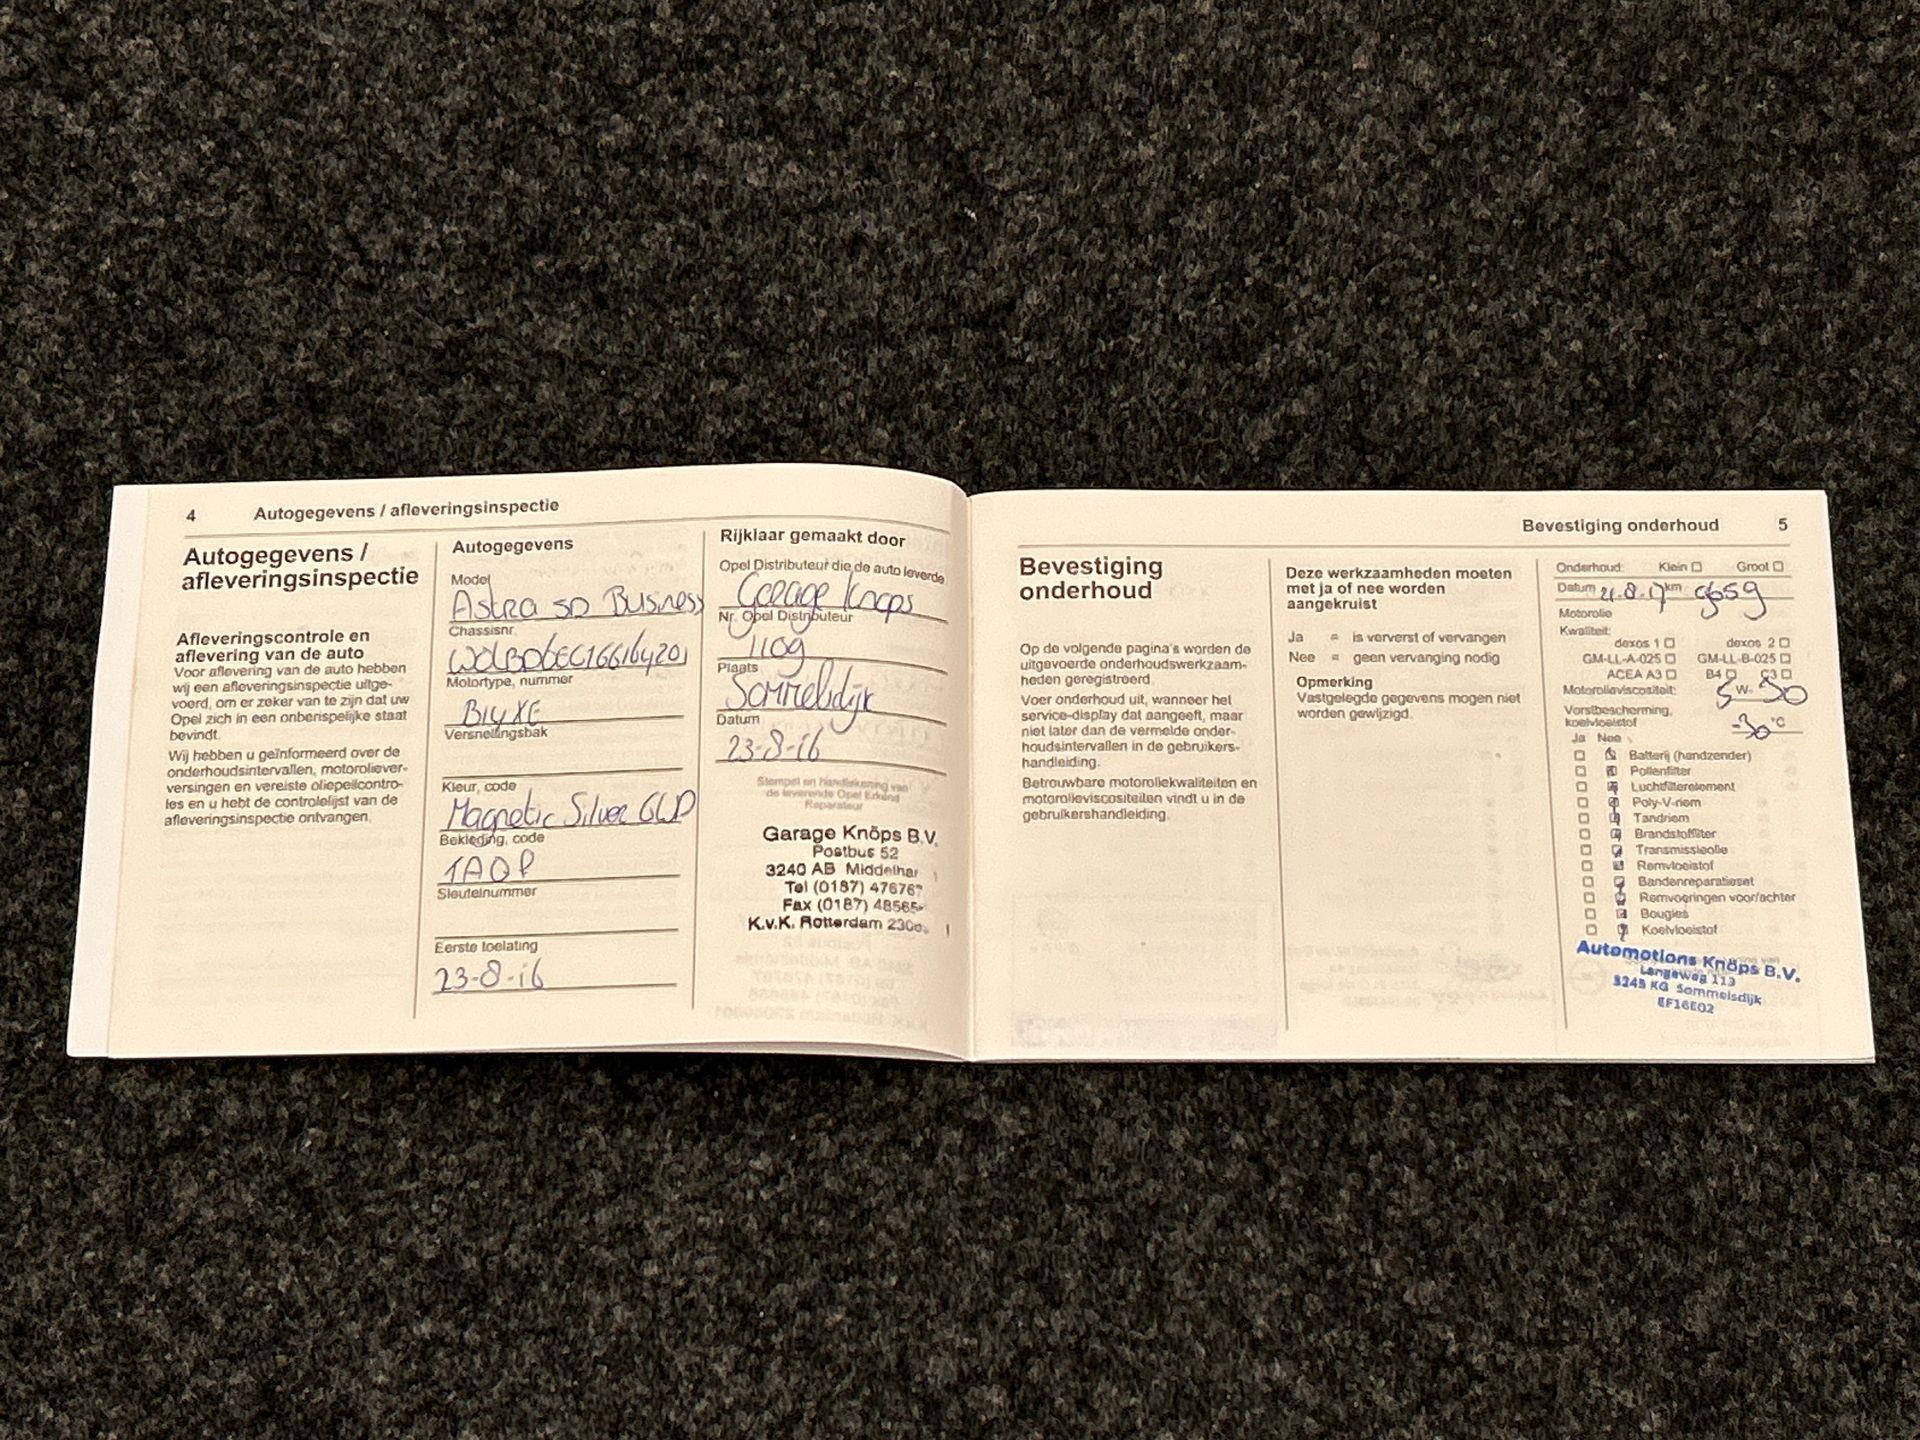 4 Autogegevens / afleveringsinspectie
Autogegevens /
afleveringsinspectie
Afleveringscontrole en
aflevering van de auto
Voor aflevering van de auto hebben
wij een afleveringsinspectie uitge-
voerd, om er zeker van te zijn dat uw
Opel zich in een onberispelijke staat
bevindt.
Wij hebben u geïnformeerd over de
onderhoudsintervallen, motoroliever-
versingen en vereiste oliepeilcontro-
les en u hebt de controlelijst van de
afleveringsinspectie ontvangen.
Autogegevens
Model
Astra 5D Business
Chassisnr.
Motortype, nummer
B14XE
Versnellingsbak
Kleur, code
Magnetic Silver GWD
Bekleding, code
TAQP
Sleutelnummer
Eerste toelating
23-8-16
Rijklaar gemaakt door
Opel Distributeur die de auto leverde
Garage Knöps
Nr. Opel Distributeur
1109
Plaats
Sommelsdijk
Datum
23-8-16
Stempel en handtekening van
de leverende Opel Erkend
Reparateur
Garage Knöps B.V.
Postbus 52
3240 AB Middelhar
Tel (0187) 47676
Fax (0187) 48565
K.v.K. Rotterdam 230
Bevestiging onderhoud 5
Bevestiging
onderhoud
Op de volgende pagina's worden de
uitgevoerde onderhoudswerkzaam-
heden geregistreerd.
Voer onderhoud uit, wanneer het
service-display dat aangeeft, maar
niet later dan de vermelde onder-
houdsintervallen in de gebruikers-
handleiding.
Betrouwbare motoroliekwaliteiten en
motorolieviscositeiten vindt u in de
gebruikershandleiding.
Deze werkzaamheden moeten
met ja of nee worden
aangekruist
Ja = is ververst of vervangen
Nee = geen vervanging nodig
Opmerking
Vastgelegde gegevens mogen niet
worden gewijzigd.
Onderhoud: Klein Groot
Datum 21-8-17 km 9659
Motorolie
Kwaliteit:
dexos 1 dexos 2
GM-LL-A-025 GM-LL-B-025
ACEA A3 B4 C3
Motorolieviscositeit: 5 W- 30
Vorstbescherming,
koelvloeistof -30 °C
Ja Nee
Batterij (handzender)
Pollenfilter
Luchtfilterelement
Poly-V-riem
Tandriem
Brandstoffilter
Transmissieolie
Remvloeistof
Bandenreparatieset
Remvoeringen voor/achter
Bougies
Koelvloeistof
Automotions Knöps B.V.
Langeweg 113
3245 KG Sommelsdijk
EF16E02